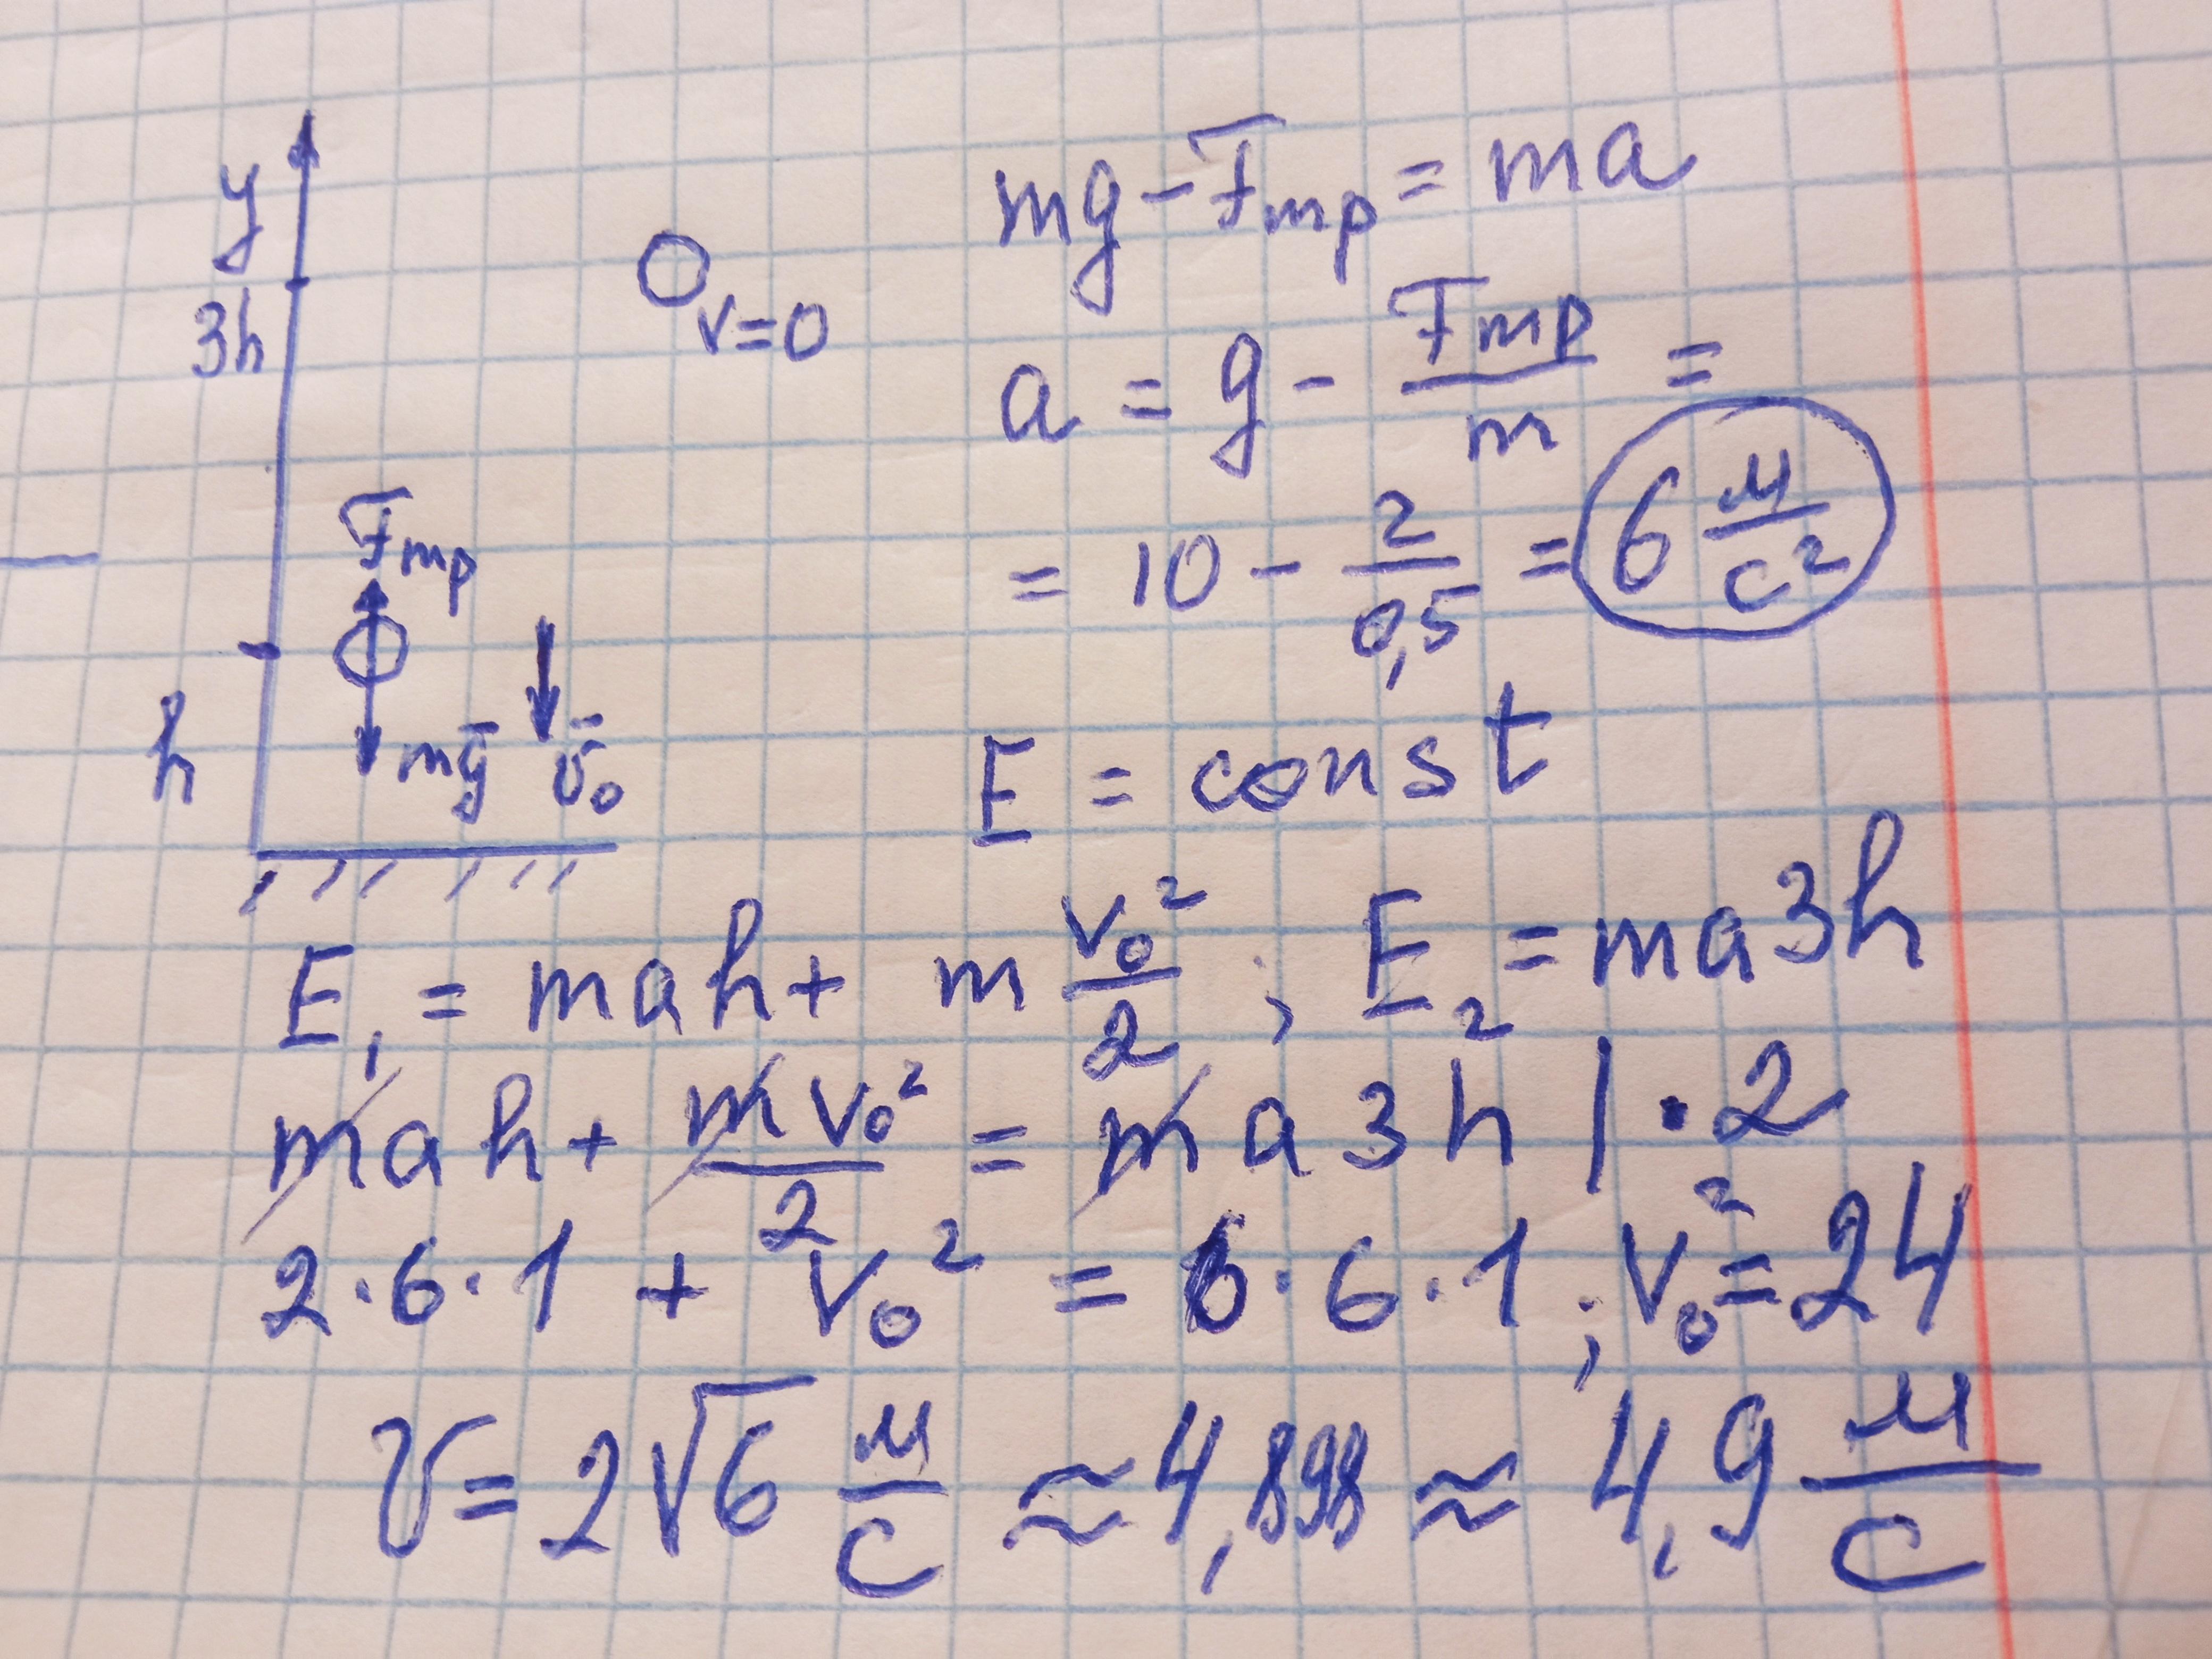 y
3h
v=0
F̄тр
mḡ
ῡ₀
h
mg - Fтр = ma
a = g - Fтр/m =
= 10 - 2/0,5 = 6 м/с²
E = const
E₁ = mah + m v₀²/2 ; E₂ = ma3h
mah + mv₀²/2 = ma3h | · 2
2·6·1 + v₀² = 6·6·1 ; v₀² = 24
v = 2√6 м/с ≈ 4,898 ≈ 4,9 м/с